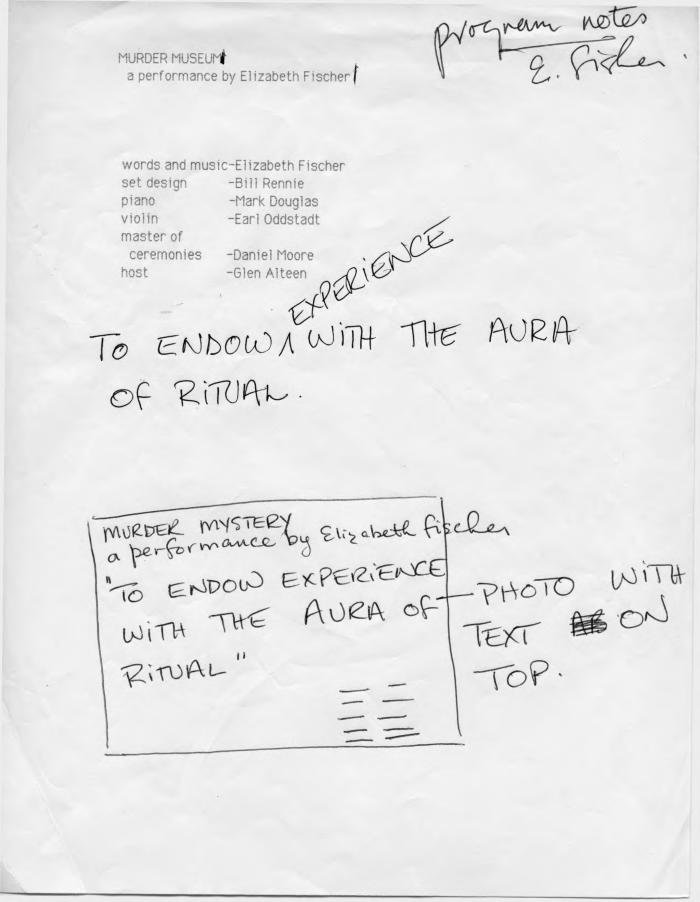 program notes
E. Fisher.
MURDER MUSEUM
a performance by Elizabeth Fischer
words and music-Elizabeth Fischer
set design -Bill Rennie
piano -Mark Douglas
violin -Earl Oddstadt
master of
ceremonies -Daniel Moore
host -Glen Alteen
EXPERIENCE
TO ENDOW ∧ WITH THE AURA
OF RITUAL.
MURDER MYSTERY
a performance by Elizabeth fischer
"TO ENDOW EXPERIENCE
WITH THE AURA OF
RITUAL"
PHOTO WITH
TEXT ON
TOP.